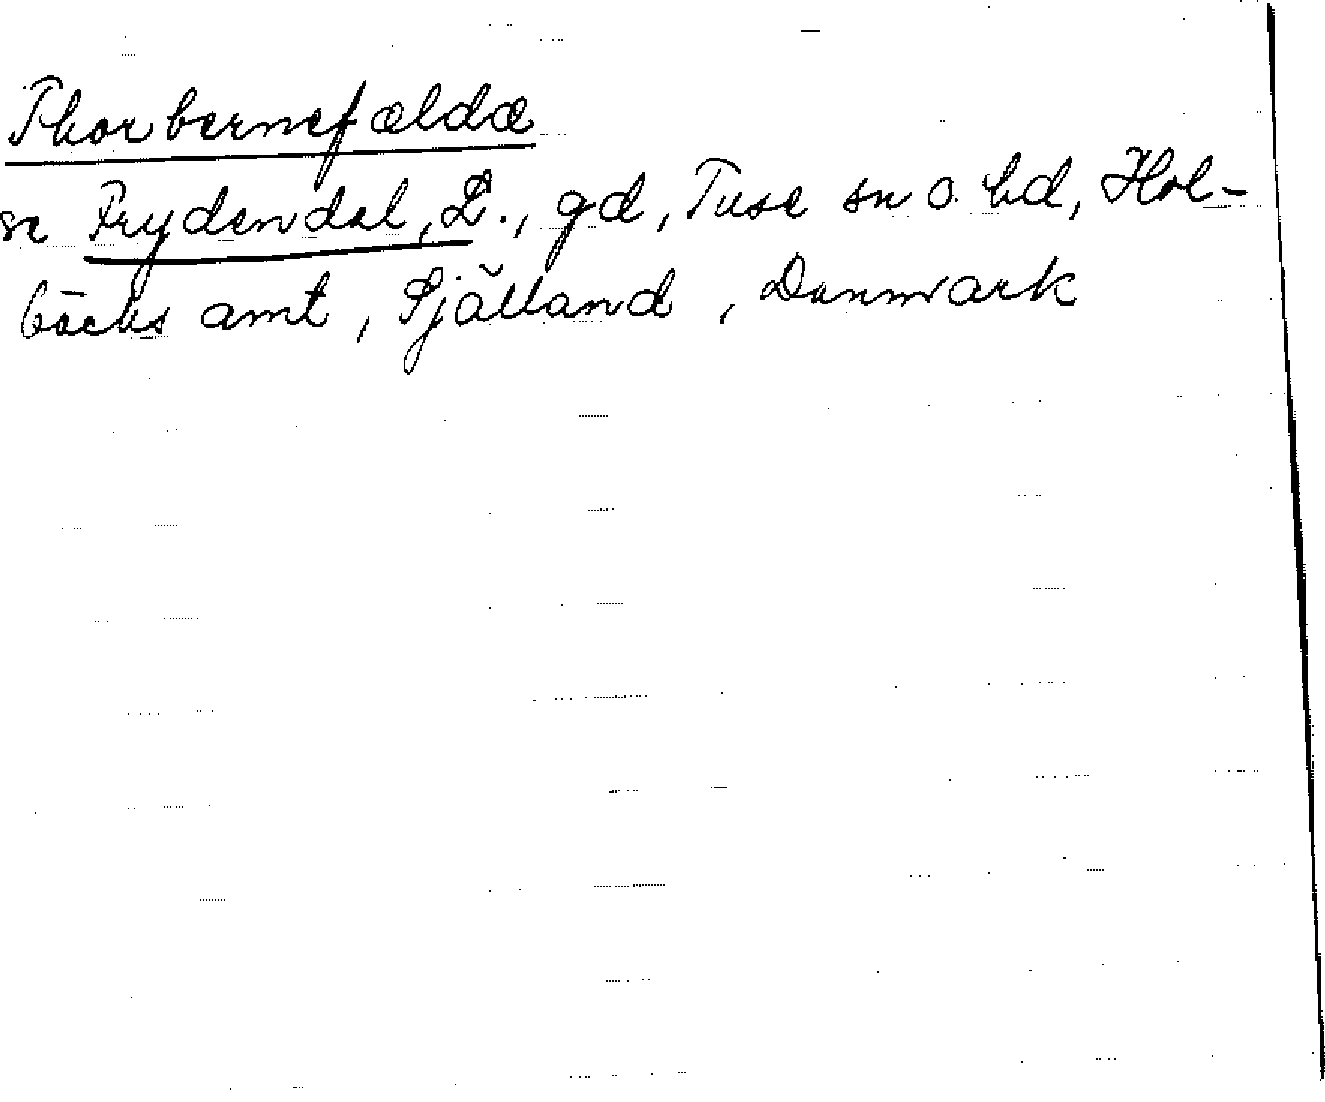 Thorbernefældæ
se Frydendal, L., gd, Tuse sn o. hd, Hol-
bäcks amt, Själland, Danmark